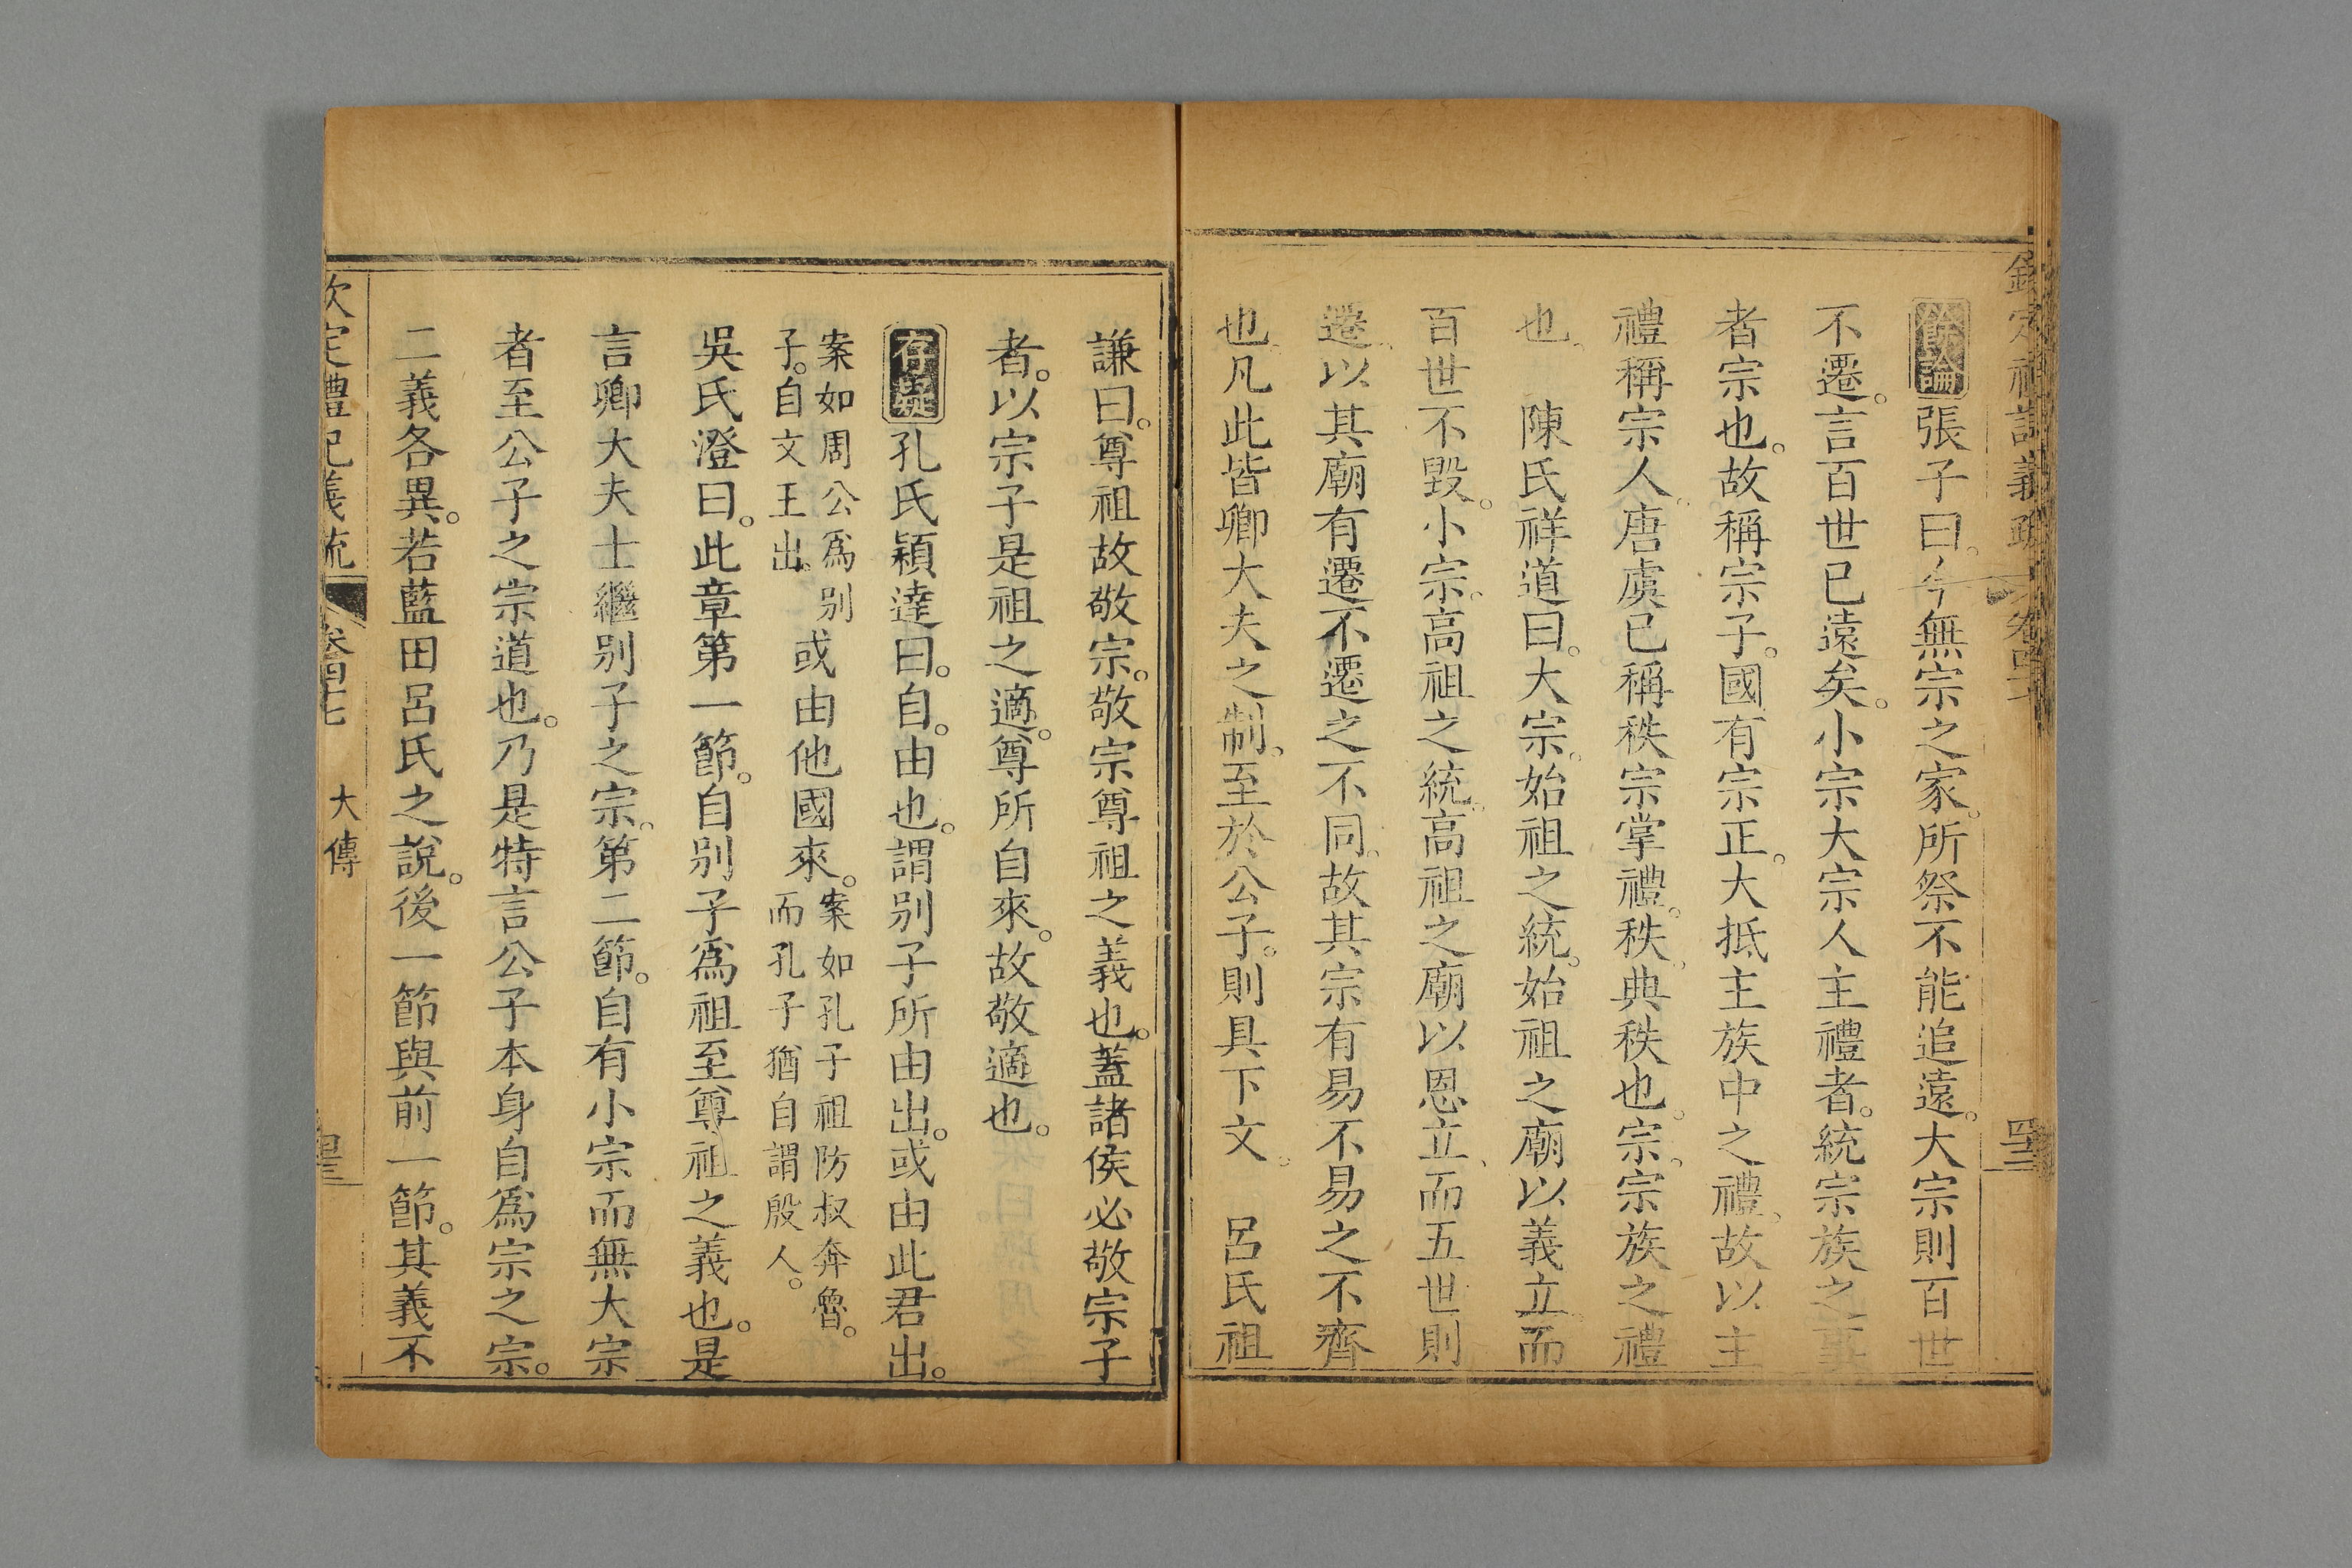 欽定禮記義疏 卷四十七 四十二
餘論張子曰。今無宗之家。所祭不能追遠。大宗則百世
不遷。言百世已遠矣。小宗大宗人主禮者。統宗族之事
者宗也。故稱宗子。國有宗正。大抵主族中之禮。故以主
禮稱宗人。唐虞已稱秩宗掌禮。秩。典秩也。宗。宗族之禮
也。　陳氏祥道曰。大宗。始祖之統。始祖之廟以義立。而
百世不毀。小宗。高祖之統。高祖之廟以恩立。而五世則
遷。以其廟有遷不遷之不同。故其宗有易不易之不齊
也。凡此皆卿大夫之制。至於公子。則具下文。　呂氏祖
謙曰。尊祖故敬宗。敬宗尊祖之義也。蓋諸侯必敬宗子
者。以宗子是祖之適。尊所自來。故敬適也。
存疑孔氏穎達曰。自。由也。謂別子所由出。或由此君出。
案如周公爲別
子。自文王出。
或由他國來。
案如孔子祖防叔奔魯。
而孔子猶自謂殷人。
吳氏澄曰。此章第一節。自別子爲祖至尊祖之義也。是
言卿大夫士繼別子之宗。第二節。自有小宗而無大宗
者至公子之宗道也。乃是特言公子本身自爲宗之宗。
二義各異。若藍田呂氏之說。後一節與前一節。其義不
欽定禮記義疏 卷四十七 大傳 四十三